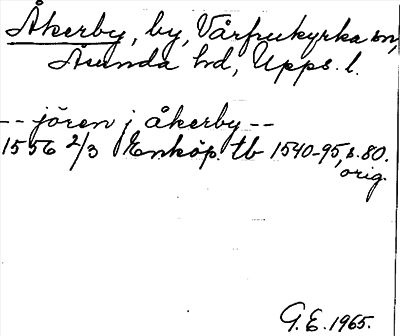 Åkerby, by, Vårfrukyrka sn,
Åsunda hd, Upps. l.
-- jören j åkerby --
1556 2/3 Enköp. tb 1540-95, s. 80.
orig.
G.E. 1965.